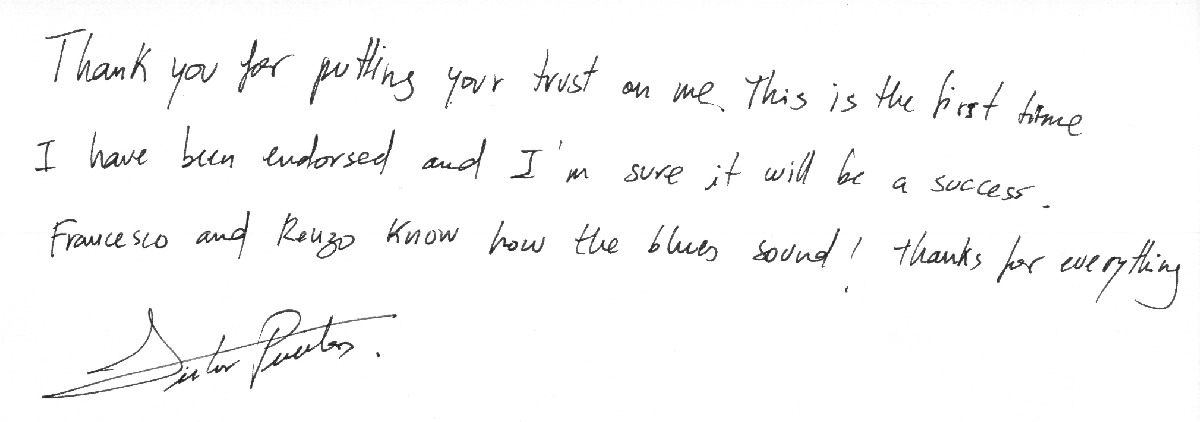 Thank you for putting your trust on me. This is the first time
I have been endorsed and I'm sure it will be a success.
Francesco and Renzo know how the blues sound! thanks for everything